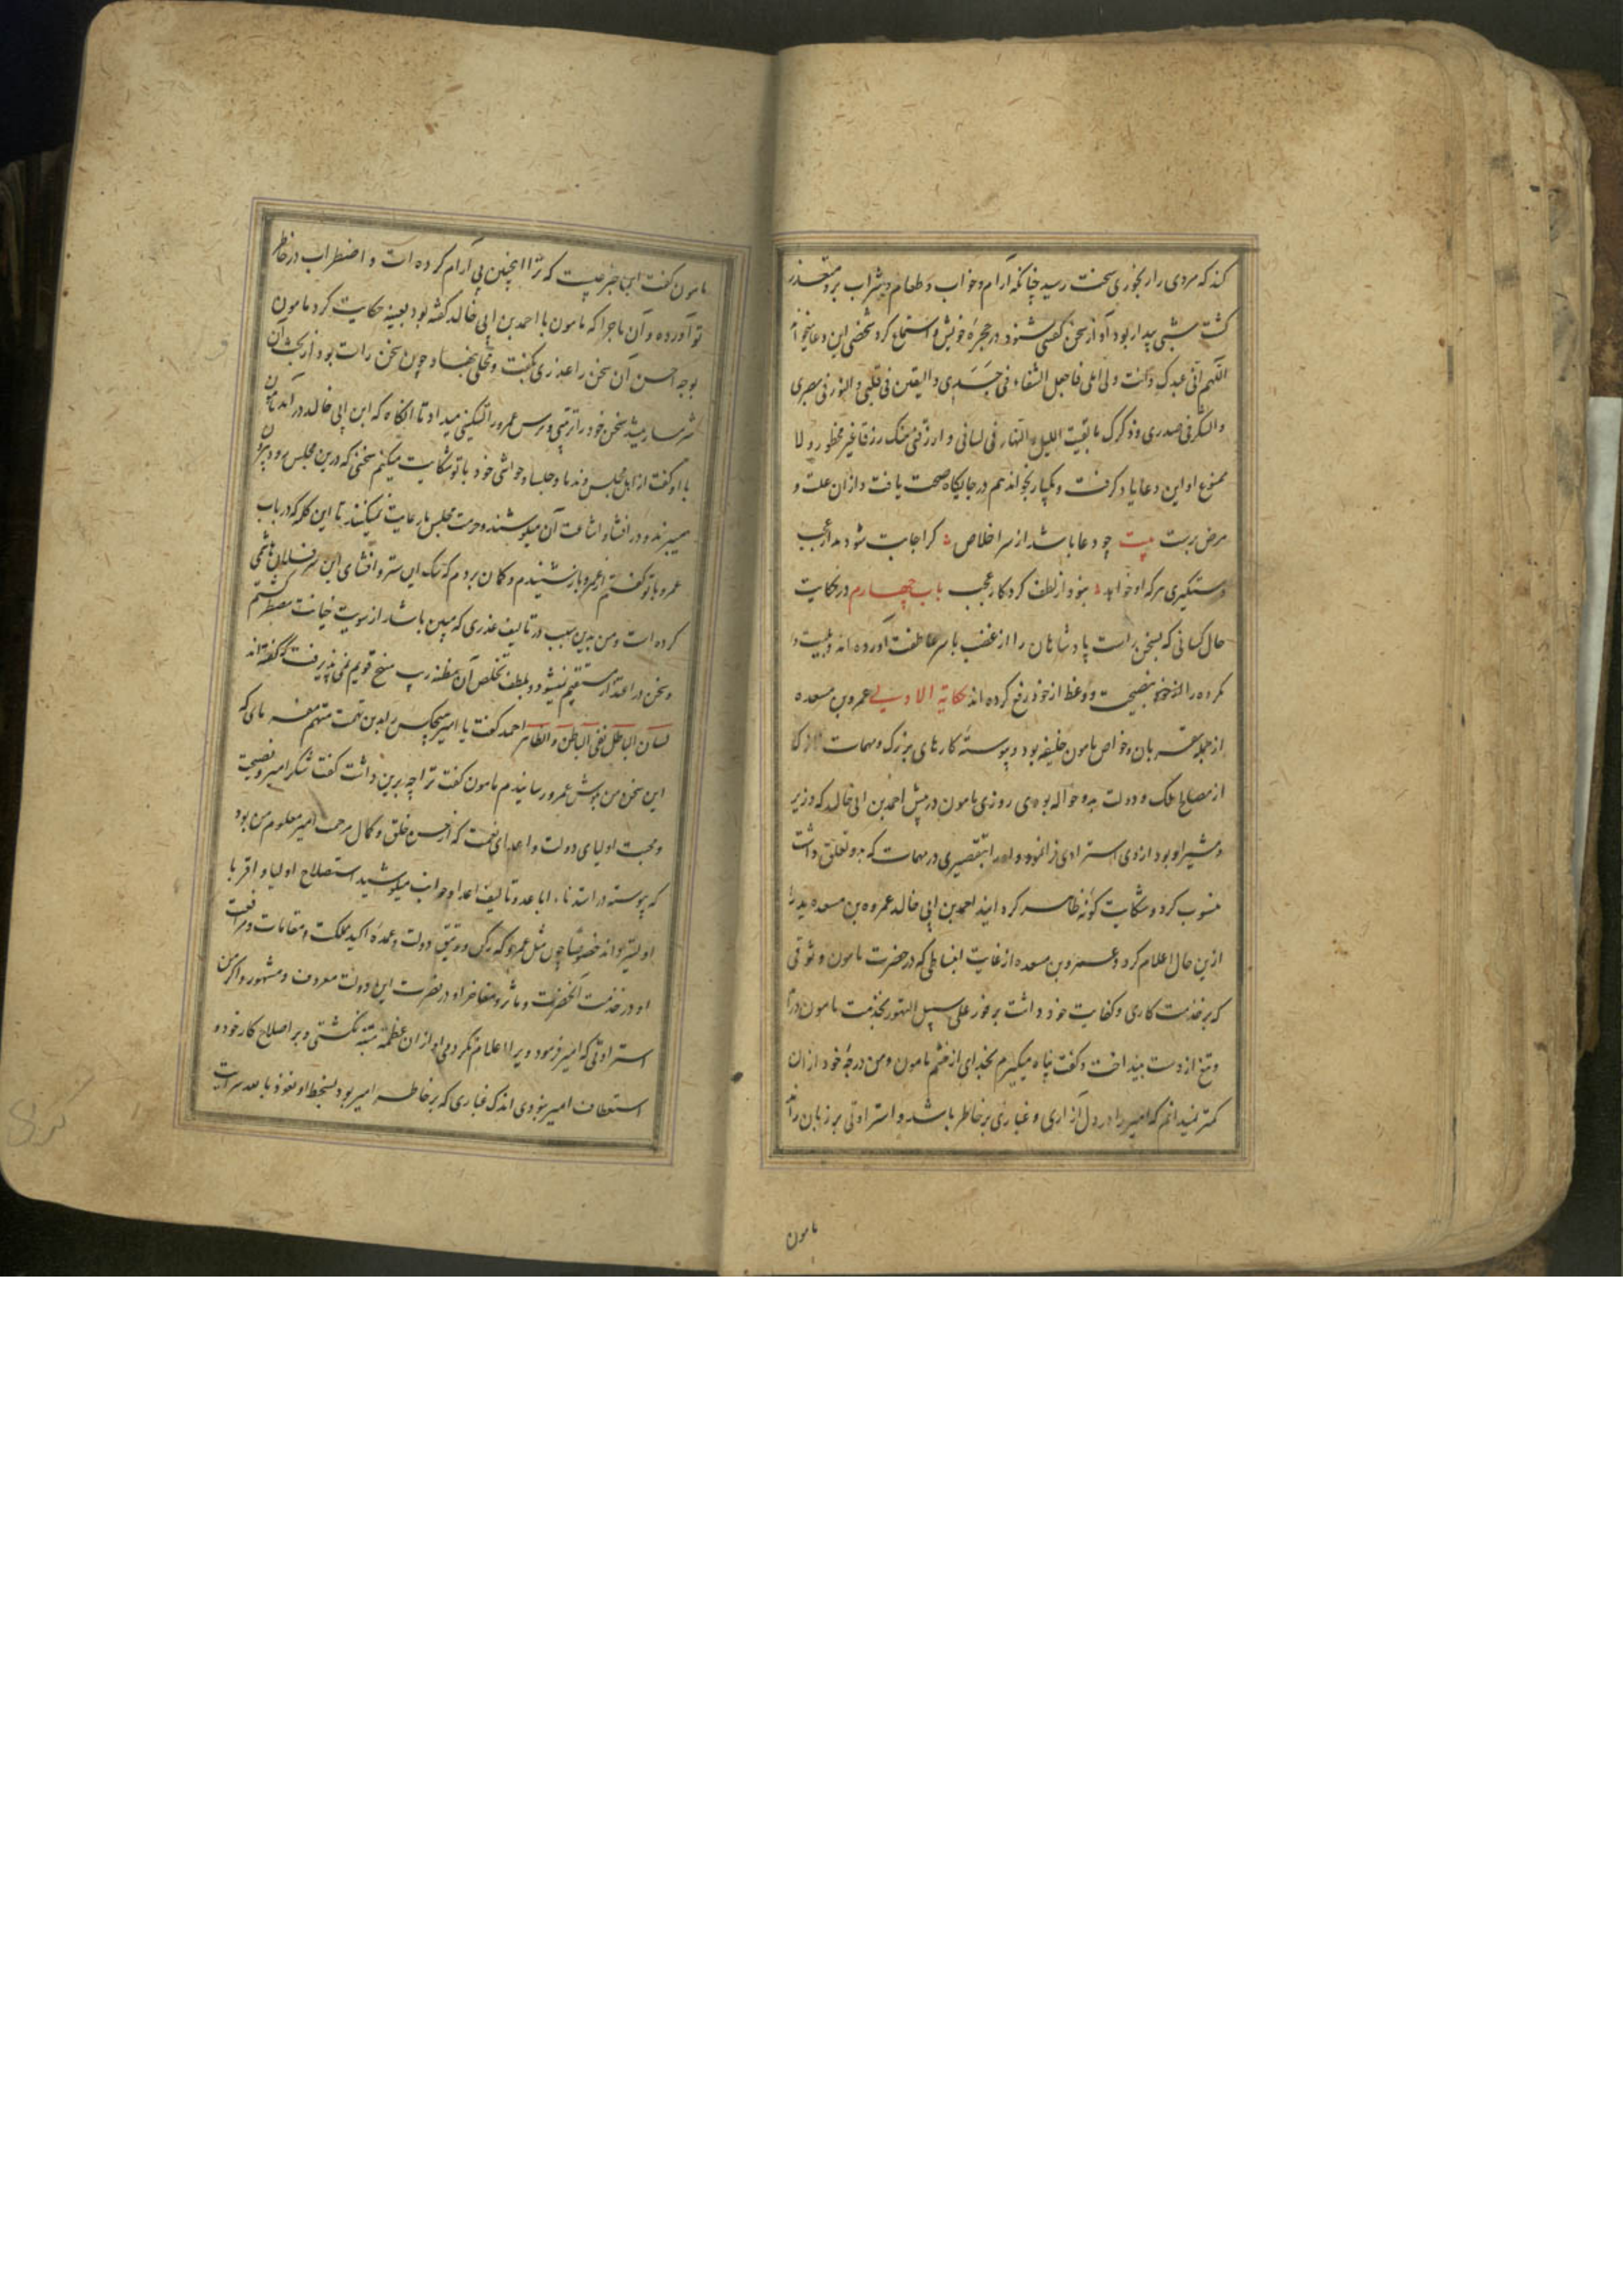 کند که مردی را رنجوری سخت رسید چنانکه آرام و خواب و طعام و شراب برو متعذر
کشت شبی بیدار بود آواز سخن کفتن شنود در حجرهٔ خویش و استماع کرد شخصی این دعا میخواند
اللهم انی عبدک وانت ولی املی فاجعل الشفاء فی جَسَدِی والیقین فی قلبی والنور فی بصری
والشکر فی صدری وذکرک ما بقیت اللیل والنهار فی لسانی وارزقنی منک رزقا غیر محظور ولا
ممنوع او این دعا یاد کرفت و یکبار بخواند هم در جایکاه صحت یافت و ازان علت و
مرض برست بیت چو دعا باشد از سر اخلاص کر اجابت شود مدار عجب
دستکیری هر که او خواند نبود از لطف کردکار عجب باب چهارم در حکایت
حال کسانی که بسخن راست پادشاهان را از غضب با سر عاطفت آورده اند و بلیت و
مکروه را از خود بنصیحت و وعظ از خود رفع کرده اند حکایة الاولی عمرو بن مسعده
از جمله مقربان و خواص مامون خلیفه بود و پیوسته کارهای بزرک و مهمات
از مصالح ملک و دولت بدو حواله بودی روزی مامون در پیش احمد بن ابی خالد که وزیر
و مشیر او بود از وی استرادی فرا نمود و او را بتقصیری در مهمات که بدو تعلق داشت
منسوب کرد و شکایت کونه ظاهر کرد انید احمد بن ابی خالد عمرو بن مسعده را
ازین حال اعلام کرد و عمرو بن مسعده از غایت انبساطی که در حضرت مامون و ثوقی
که بر خدمت کاری و کفایت خود داشت بر فور علی سبیل التهور بخدمت مامون درآمد
و تیغ از دست بینداخت و کفت پناه میکیرم بخدای از خشم مامون و من درجهٔ خود ازان
کمتر نمیدانم که امیر را در دل آزاری و غباری بر خاطر باشد و استرادتی بر زبان راند
مامون
مامون کفت این چه خبر چیست که ترا اینچنین بی آرام کرده است و اضطراب در خاطر
تو آورده و آن ماجرا که مامون با احمد بن ابی خالد کفته بود بعینه حکایت کرد مامون
بوجه احسن آن سخن را عذری بکفت و محلی نهاد چون سخن راست بود از بحث آن
شرمسار میشد سخن خود را ترتیبی و ترس عمرو را تسکینی میداد تا آنکاه که ابن ابی خالد درآمد مامون
با او کفت از اهل مجلس و ندما و جلسا و حواشی خود با تو شکایت میکنم سخنی که درین مجلس رود بیرون
میبرند و در افشاء و اشاعت آن میکوشند و حرمت مجلس ما رعایت نمیکنند تا این کلمه که در باب
عمرو با تو کفتم از عمرو باز شنیدم و کمان بردم که هتک این ستر و افشای این سر فلان هاشمی
کرده است و من بدین سبب در تالیف عذری که مبین باشد از سویت خیانت مضطر کشتم
و سخن در اعتذار مستقیم نمیشود و بلطف تخلص آن مظنه ریب منهج قویم نمی پذیرفت که کفته اند
لسان الباطل نفی الباطن والظاهر احمد کفت یا امیر هیچکس را بدین تهمت متهم مفرمای که
این سخن من بکوش عمرو رسانیدم مامون کفت ترا چه برین داشت کفت شکر امیر و نصیحت
و محبت اولیای دولت و اعدای نعمت که از حسن خلق و کمال مرحمت امیر معلوم من بود
که پیوسته در استدناء اباعد و تالیف اعدا و جوانب میکوشید استصلاح اولیا و اقربا
اولیتر داند خصوصا چون مثل عمرو که رکن وثیق دولت و عمدهٔ اکید مملکت و مقامات و مرافعت
او در خدمت آنحضرت و ماثر و مفاخر او در نصرت این دولت معروف و مشهور و اکر من
استرادتی که امیر فرمود ویرا اعلام نکردمی او ازان عظمه متنبه نکشتی و بر اصلاح کار خود و
استعطاف امیر نبودی اندک غباری که بر خاطر امیر بود بسخط او نعوذ بالله سرایت